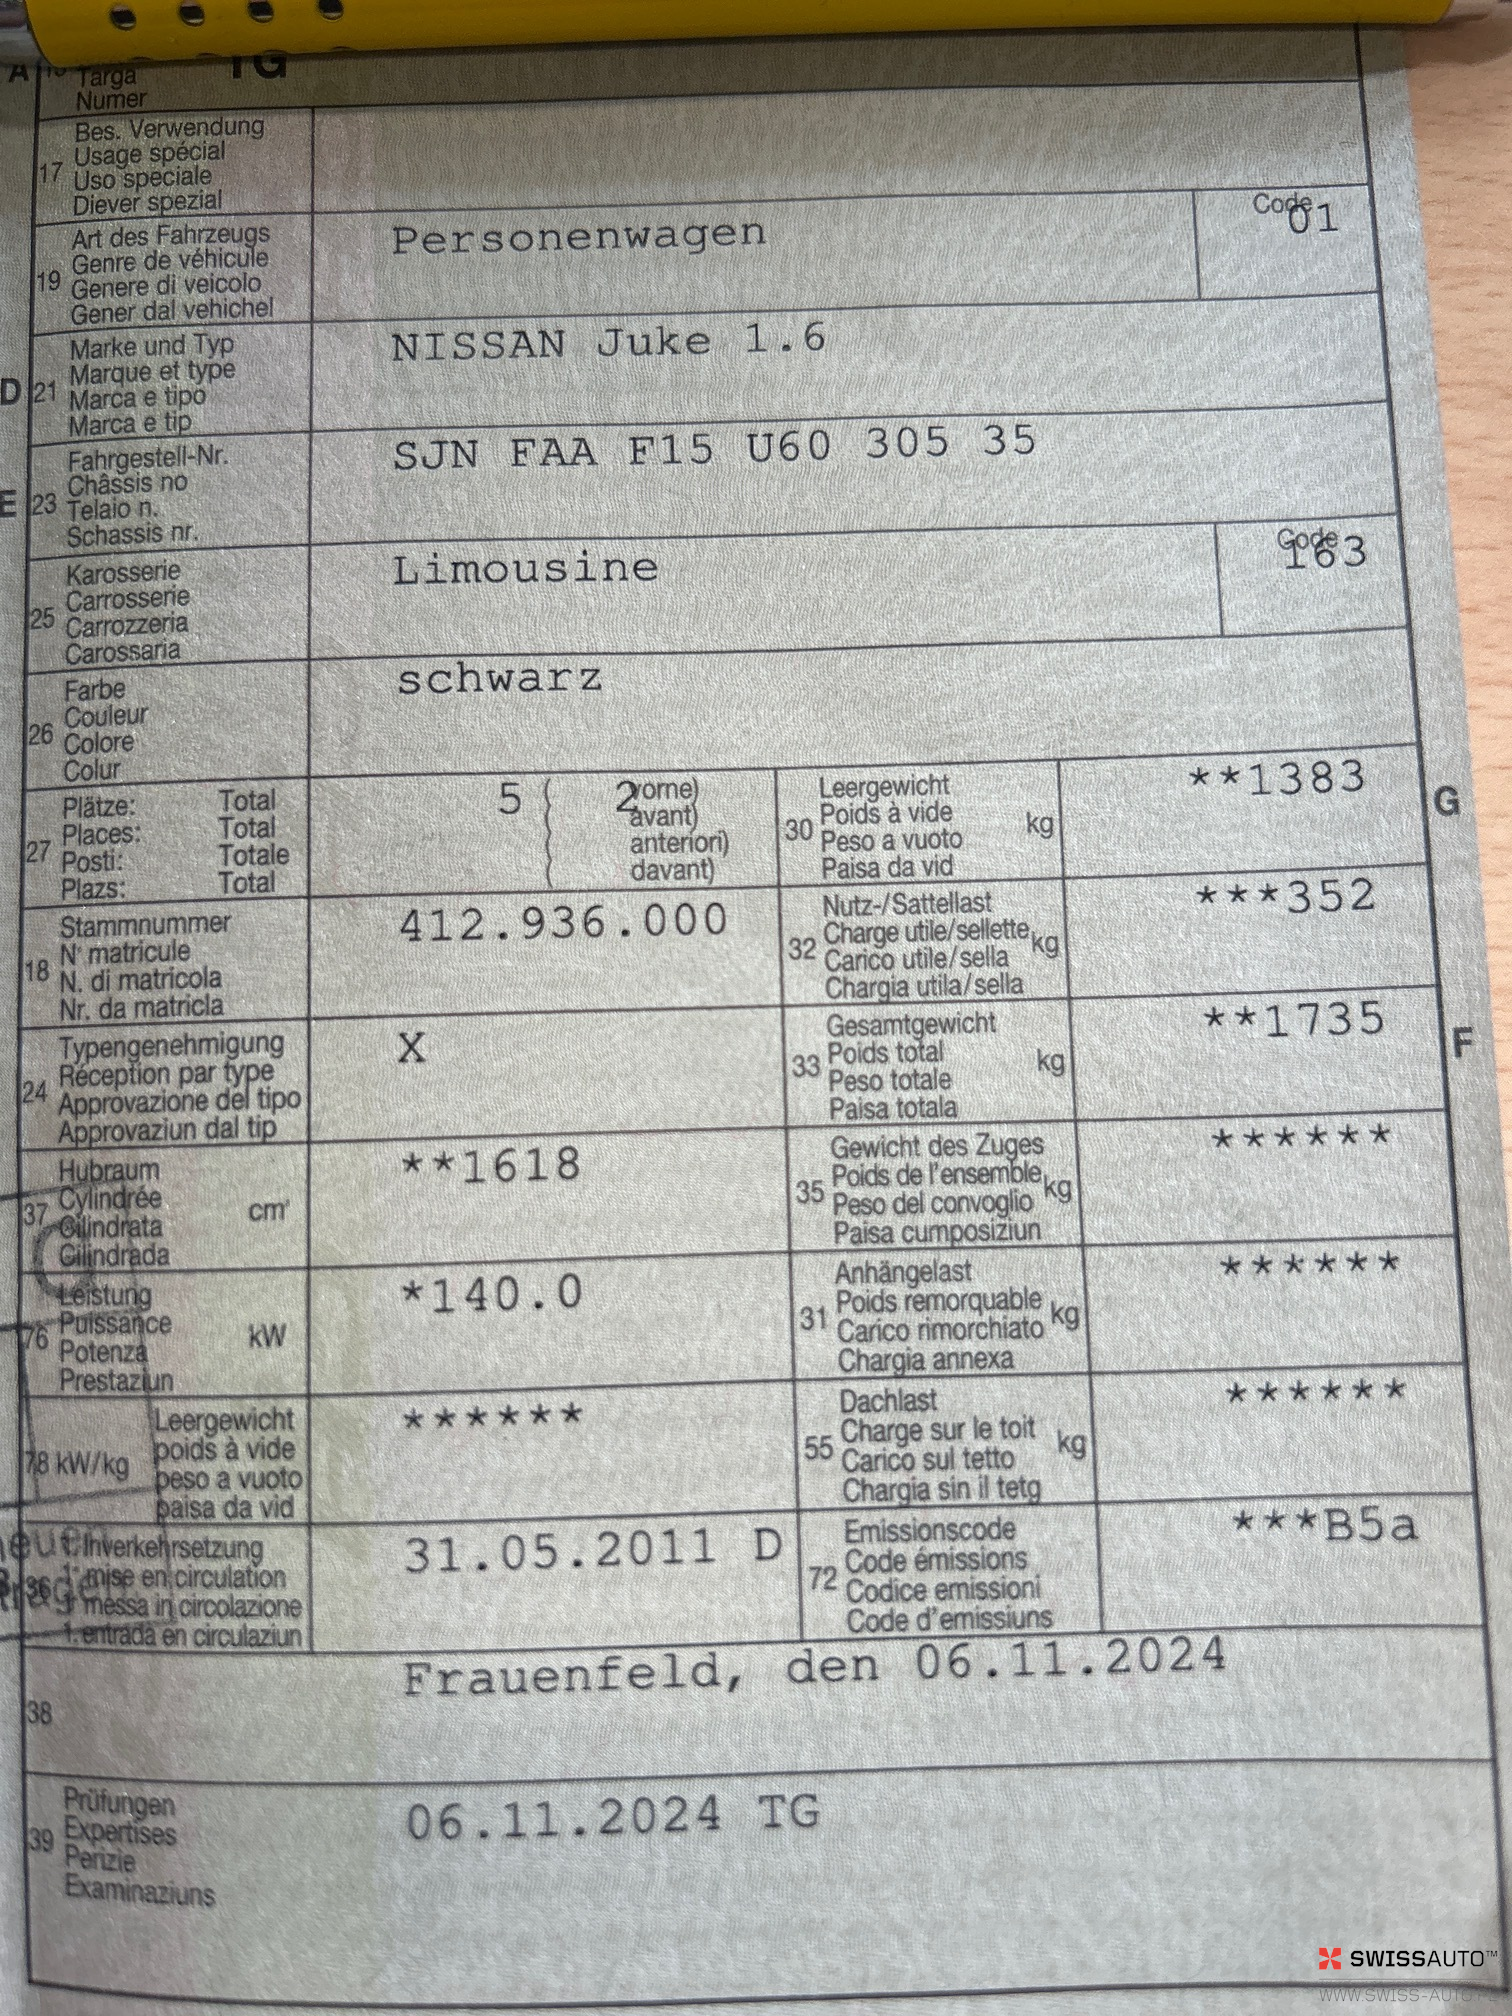 A Targa TG
Numer
Bes. Verwendung
Usage spécial
17 Uso speciale
Diever spezial
Art des Fahrzeugs Personenwagen Code 01
Genre de véhicule
19 Genere di veicolo
Gener dal vehichel
Marke und Typ NISSAN Juke 1.6
Marque et type
D 21 Marca e tipo
Marca e tip
Fahrgestell-Nr. SJN FAA F15 U60 305 35
Châssis no
E 23 Telaio n.
Schassis nr.
Karosserie Limousine Code 163
Carrosserie
25 Carrozzeria
Carossaria
Farbe schwarz
Couleur
26 Colore
Colur
Plätze: Total 5 ( 2 vorne)
Places: Total avant)
27 Posti: Totale anteriori)
Plazs: Total davant)
Leergewicht **1383
30 Poids à vide kg G
Peso a vuoto
Paisa da vid
Stammnummer 412.936.000
N° matricule
18 N. di matricola
Nr. da matricla
Nutz-/Sattellast ***352
Charge utile/sellette kg
32 Carico utile/sella
Chargia utila/sella
Typengenehmigung X
Réception par type
24 Approvazione del tipo
Approvaziun dal tip
Gesamtgewicht **1735
33 Poids total kg F
Peso totale
Paisa totala
Hubraum **1618
37 Cylindrée cm³
Cilindrata
Cilindrada
Gewicht des Zuges ******
Poids de l'ensemble kg
35 Peso del convoglio
Paisa cumposiziun
Leistung *140.0
76 Puissance kW
Potenza
Prestaziun
Anhängelast ******
Poids remorquable kg
31 Carico rimorchiato
Chargia annexa
Leergewicht ******
78 kW/kg poids à vide
peso a vuoto
paisa da vid
Dachlast ******
55 Charge sur le toit kg
Carico sul tetto
Chargia sin il tetg
1. Inverkehrsetzung 31.05.2011 D
36 1re mise en circulation
1. messa in circolazione
1. entrada en circulaziun
Emissionscode ***B5a
Code émissions
72 Codice emissioni
Code d'emissiuns
38 Frauenfeld, den 06.11.2024
Prüfungen 06.11.2024 TG
39 Expertises
Perizie
Examinaziuns
SWISSAUTO™